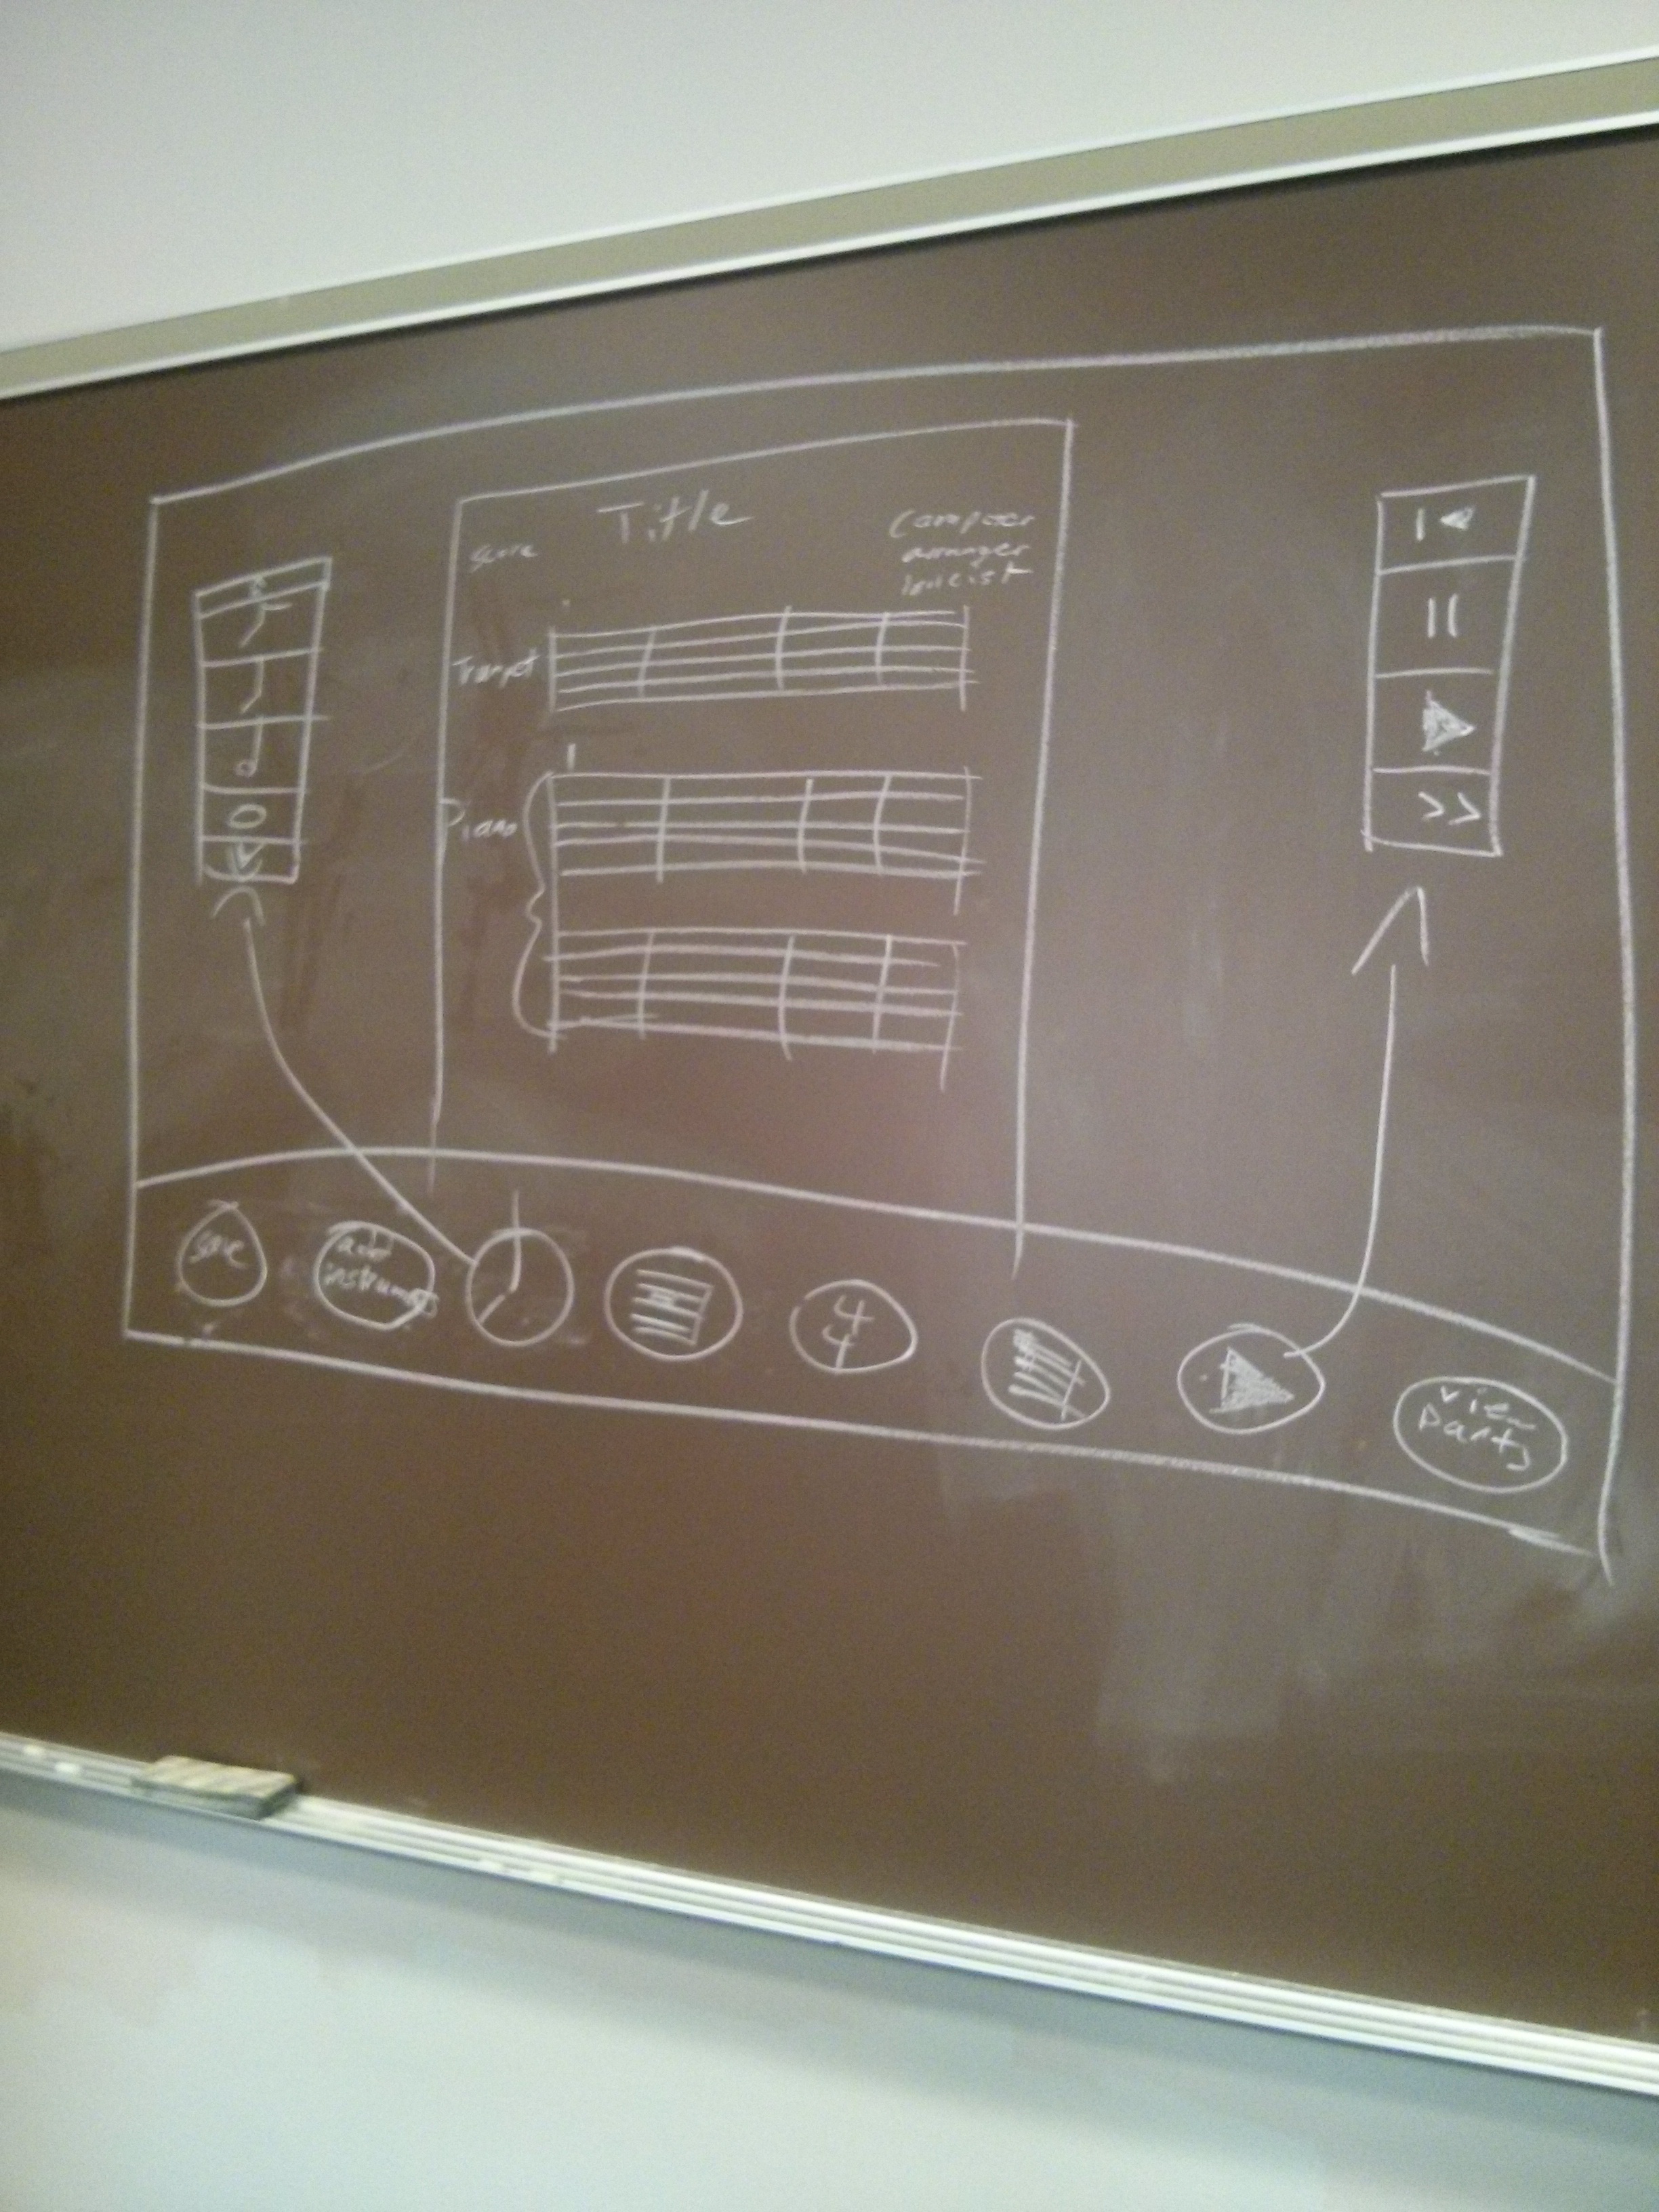 Title
score
Composer
arranger
lyricist
Trumpet
Piano
save
add
instruments
4
4
view
parts